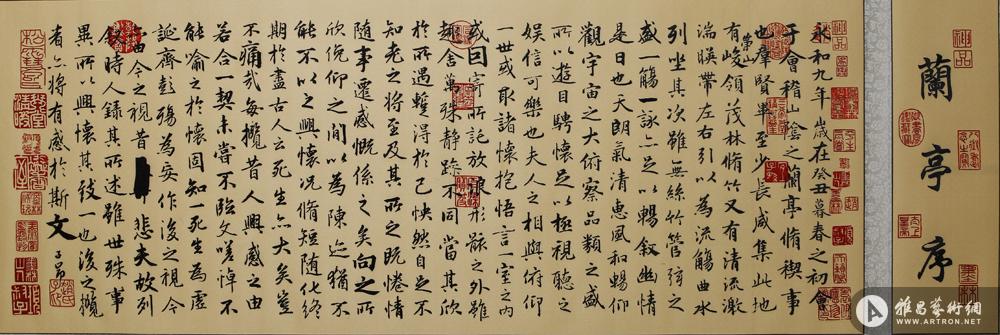 蘭亭序
永和九年歲在癸丑暮春之初會
于會稽山陰之蘭亭脩稧事
也羣賢畢至少長咸集此地
有崇山峻領茂林脩竹又有清流激
湍暎帶左右引以為流觴曲水
列坐其次雖無絲竹管弦之
盛一觴一詠亦足以暢敘幽情
是日也天朗氣清惠風和暢仰
觀宇宙之大俯察品類之盛
所以遊目騁懷足以極視聽之
娛信可樂也夫人之相與俯仰
一世或取諸懷抱悟言一室之內
或因寄所託放浪形骸之外雖
趣舍萬殊静躁不同當其欣
於所遇蹔得於己怏然自足不
知老之將至及其所之既惓情
隨事遷感慨係之矣向之所
欣俛仰之間以為陳迹猶不
能不以之興懷況脩短隨化終
期於盡古人云死生亦大矣豈
不痛哉每攬昔人興感之由
若合一契未嘗不臨文嗟悼不
能喻之於懷固知一死生為虛
誕齊彭殤為妄作後之視今
亦由今之視昔悲夫故列
敘時人錄其所述雖世殊事
異所以興懷其致一也後之攬
者亦將有感於斯文
子昂
雅昌藝術網
WWW.ARTRON.NET